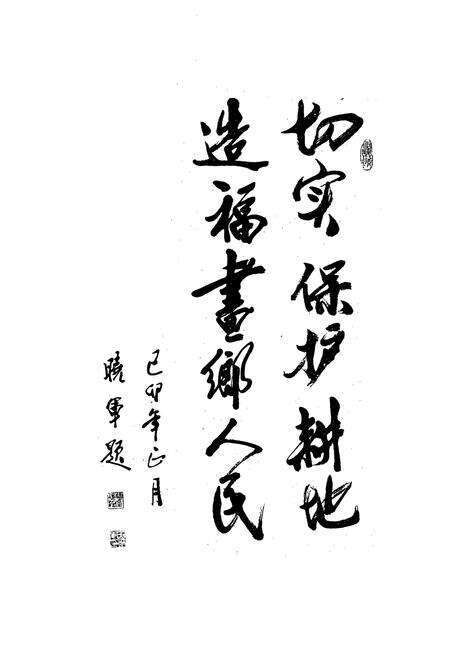 切实保护耕地
造福畫鄉人民
己卯年正月
曉軍题